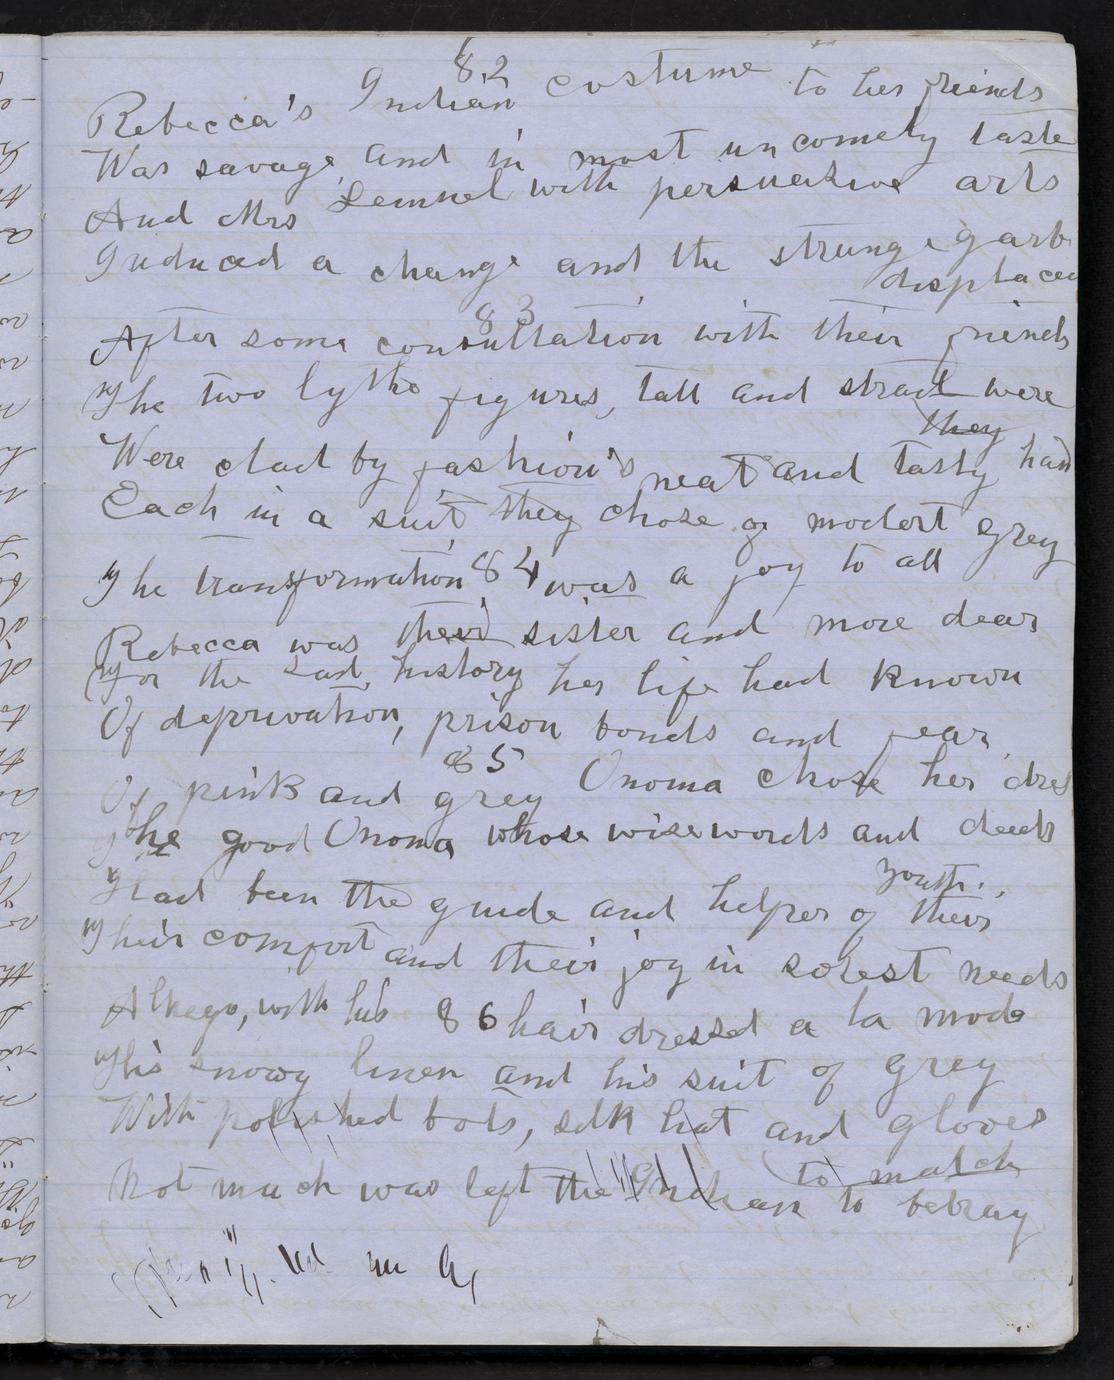 82
Rebecca's Indian costume to her friends
Was savage, and in most uncomely taste
And Mrs Lemuel with persuative arts
Induced a change and the strange garb
displaced
83
After some consultation with their friends
The two lythe figures, tall and straid were
they
Were clad by fashion's neat and tasty hand
Each in a suit they chose of modert grey
84
The transformation was a joy to all
Rebecca was their sister and more dear
For the sad history her life had known
Of deprivation, prison bonds and fear
85
Of pink and grey Onoma chose her dres
The good Onoma whose wise words and deeds
Had been the guide and helper of their
youth.,
Their comfort and their joy in sorest needs
86
Alknego, with his hair dressed a la mode
His snowy linen and his suit of grey
With polished bots, silk hat and gloves
to match
Not much was left the Indian to betray